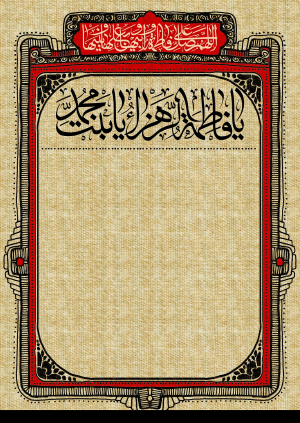 اللهم صل علی فاطمة و ابیها و بعلها و بنیها
یا فاطمة الزهراء یا بنت محمد